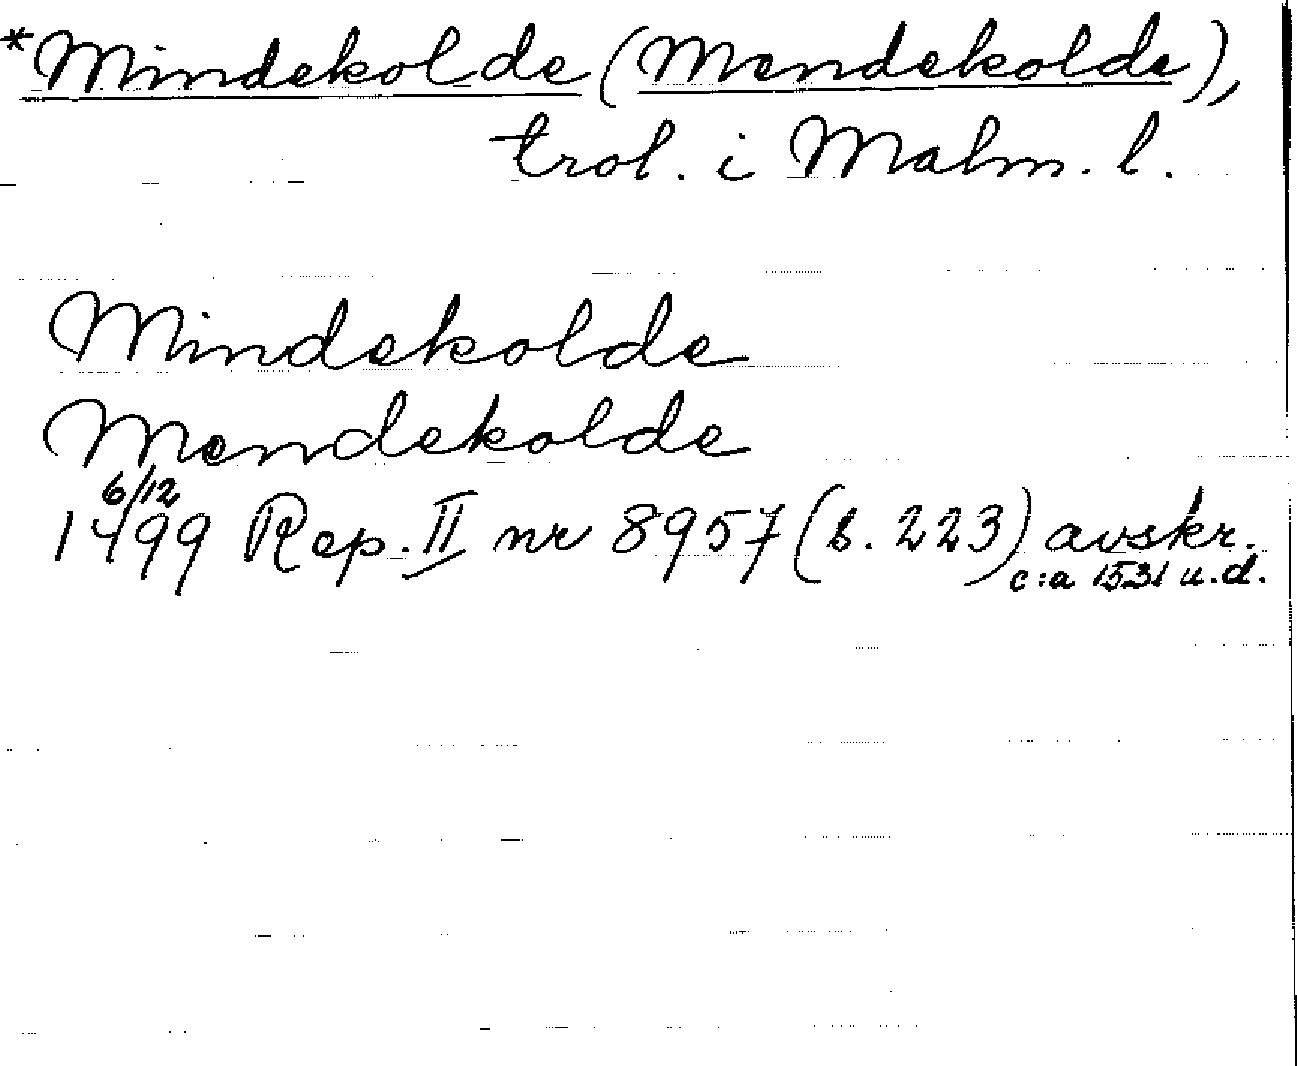 *Mindekolde (Mendekolde),
trol. i Malm. l.
Mindekolde
Mendekolde
6/12
1499 Rep. II nr 8957 (s. 223) avskr.
c:a 1531 u.d.